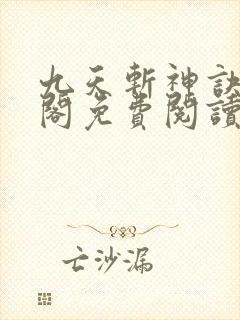 九天斬神訣
閣免費閱讀
亡沙漏